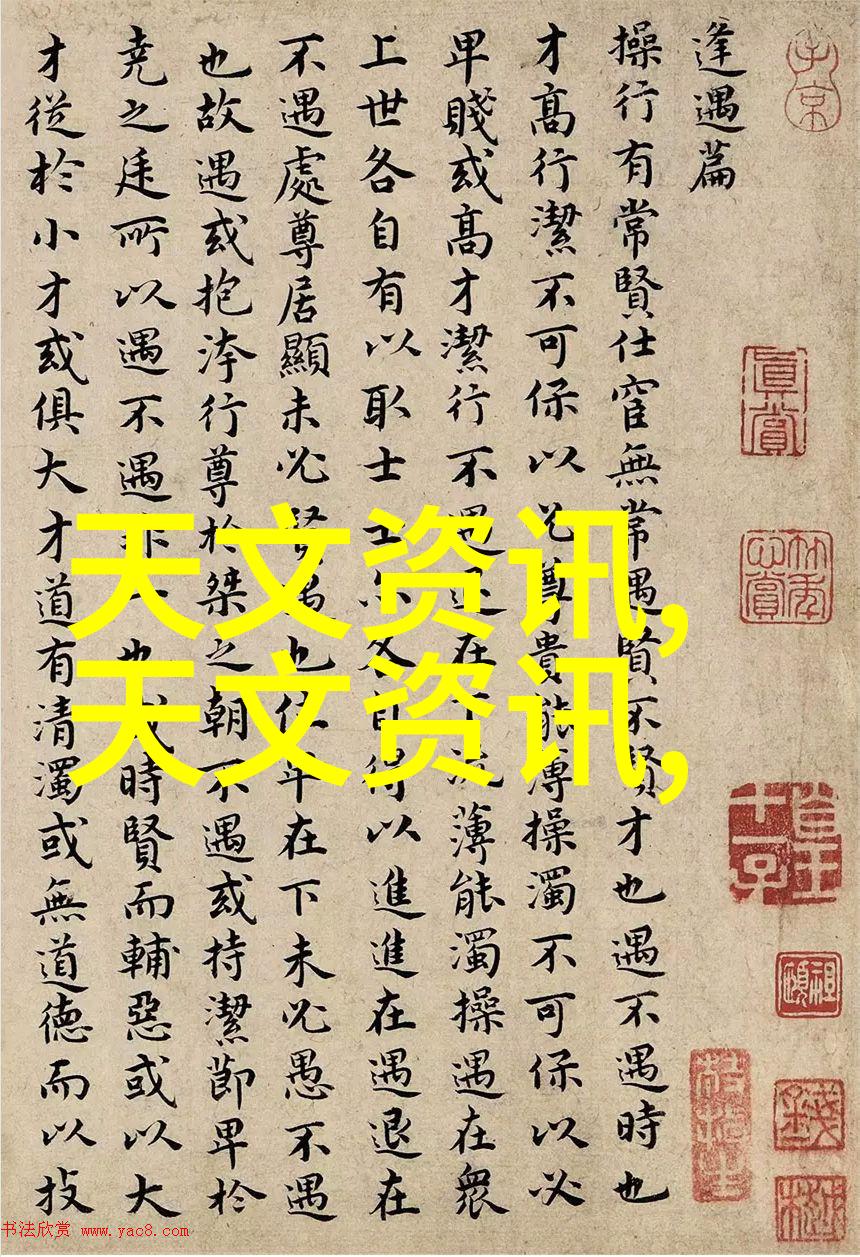 逢遇篇
操行有常賢仕宦無常遇賢不賢才也遇不遇時也
才高行潔不可保以必尊貴能薄操濁不可保以必
卑賤或高才潔行不遇退在下流薄能濁操遇在衆
上世各自有以取士士亦各自得以進進在遇退在
不遇處尊居顯未必賢遇也位卑在下未必愚不遇
也故遇或抱洿行尊於桀之朝不遇或持潔節卑於
堯之廷所以遇不遇非一也或時賢而輔惡或以大
才從於小才或俱大才道有清濁或無道德而以技
天文资讯,
天文资讯,
子京
真賞
書法欣赏 www.yac8.com